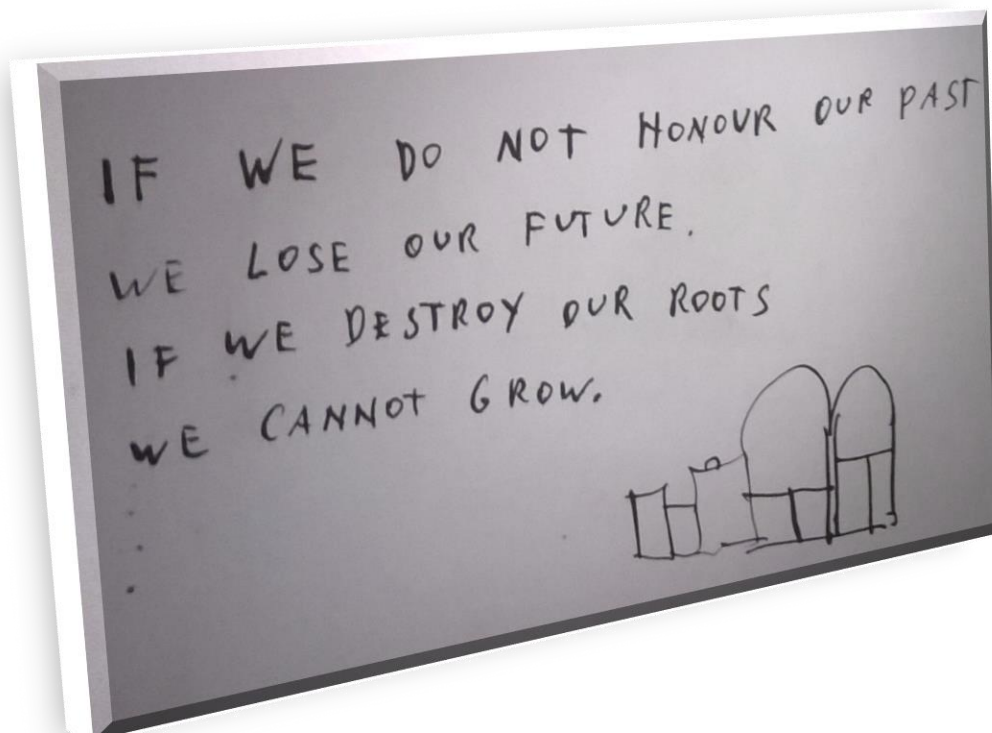 IF WE DO NOT HONOUR OUR PAST
WE LOSE OUR FUTURE.
IF WE DESTROY OUR ROOTS
WE CANNOT GROW.